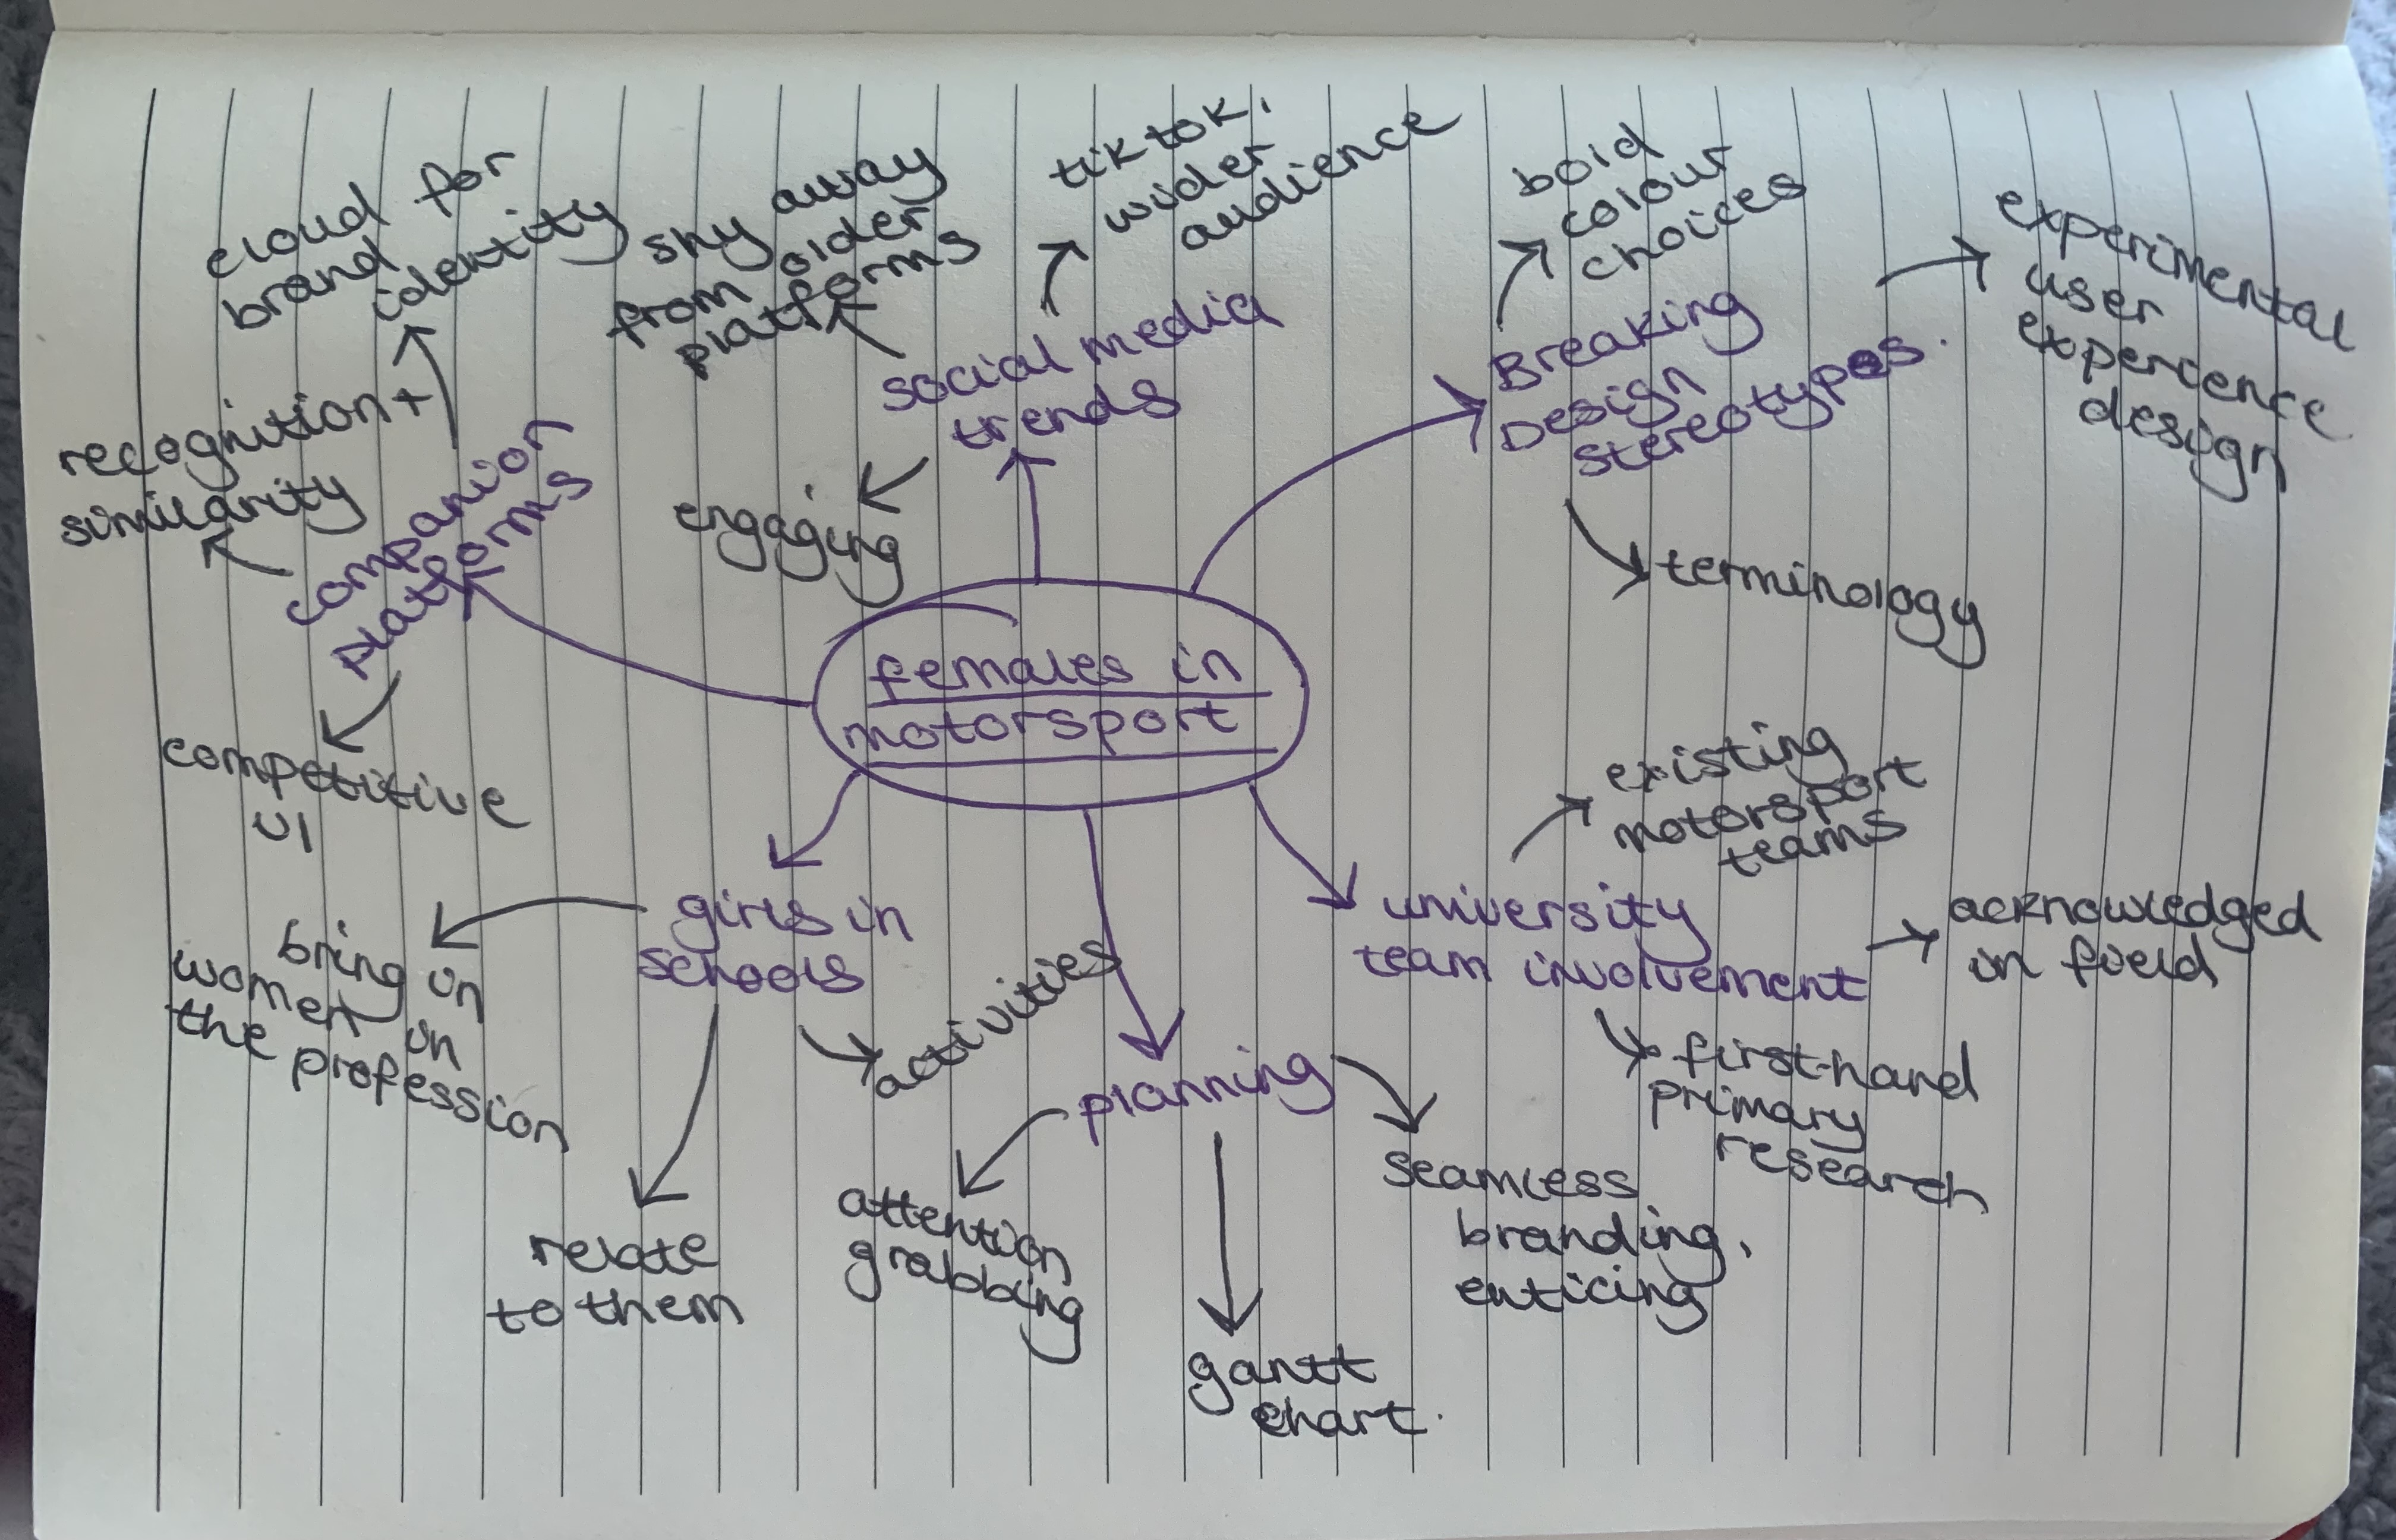 females in
motorsport
social media
trends
tiktok.
wider
audience
shy away
from older
platforms
engaging
Breaking
Design
stereotypes.
bold
colour
choices
experimental
user
experence
design
terminology
university
team involvement
existing
motorsport
teams
acknowledged
in field
first-hand
primary
research
planning
seamless
branding,
enticing
gantt
chart.
attention
grabbing
girls in
schools
activities
relate
to them
bring in
women in
the profession
companion
platforms
cloud for
brand
identity
recognition +
similarity
competitive
UI